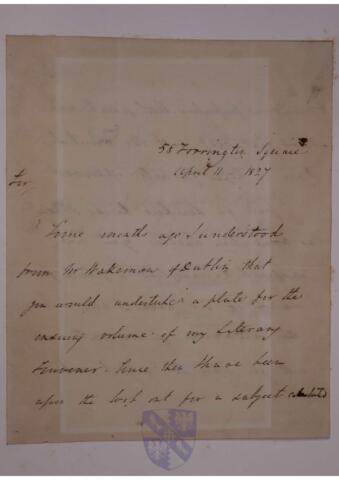 58 Torrington Square
April 11 1827
Sir,
Some months ago I understood
from Mr Wakeman of Dublin that
you would undertake a plate for the
ensuing volume of my Literary
Souvenir. Since then I have been
upon the look out for a subject calculated